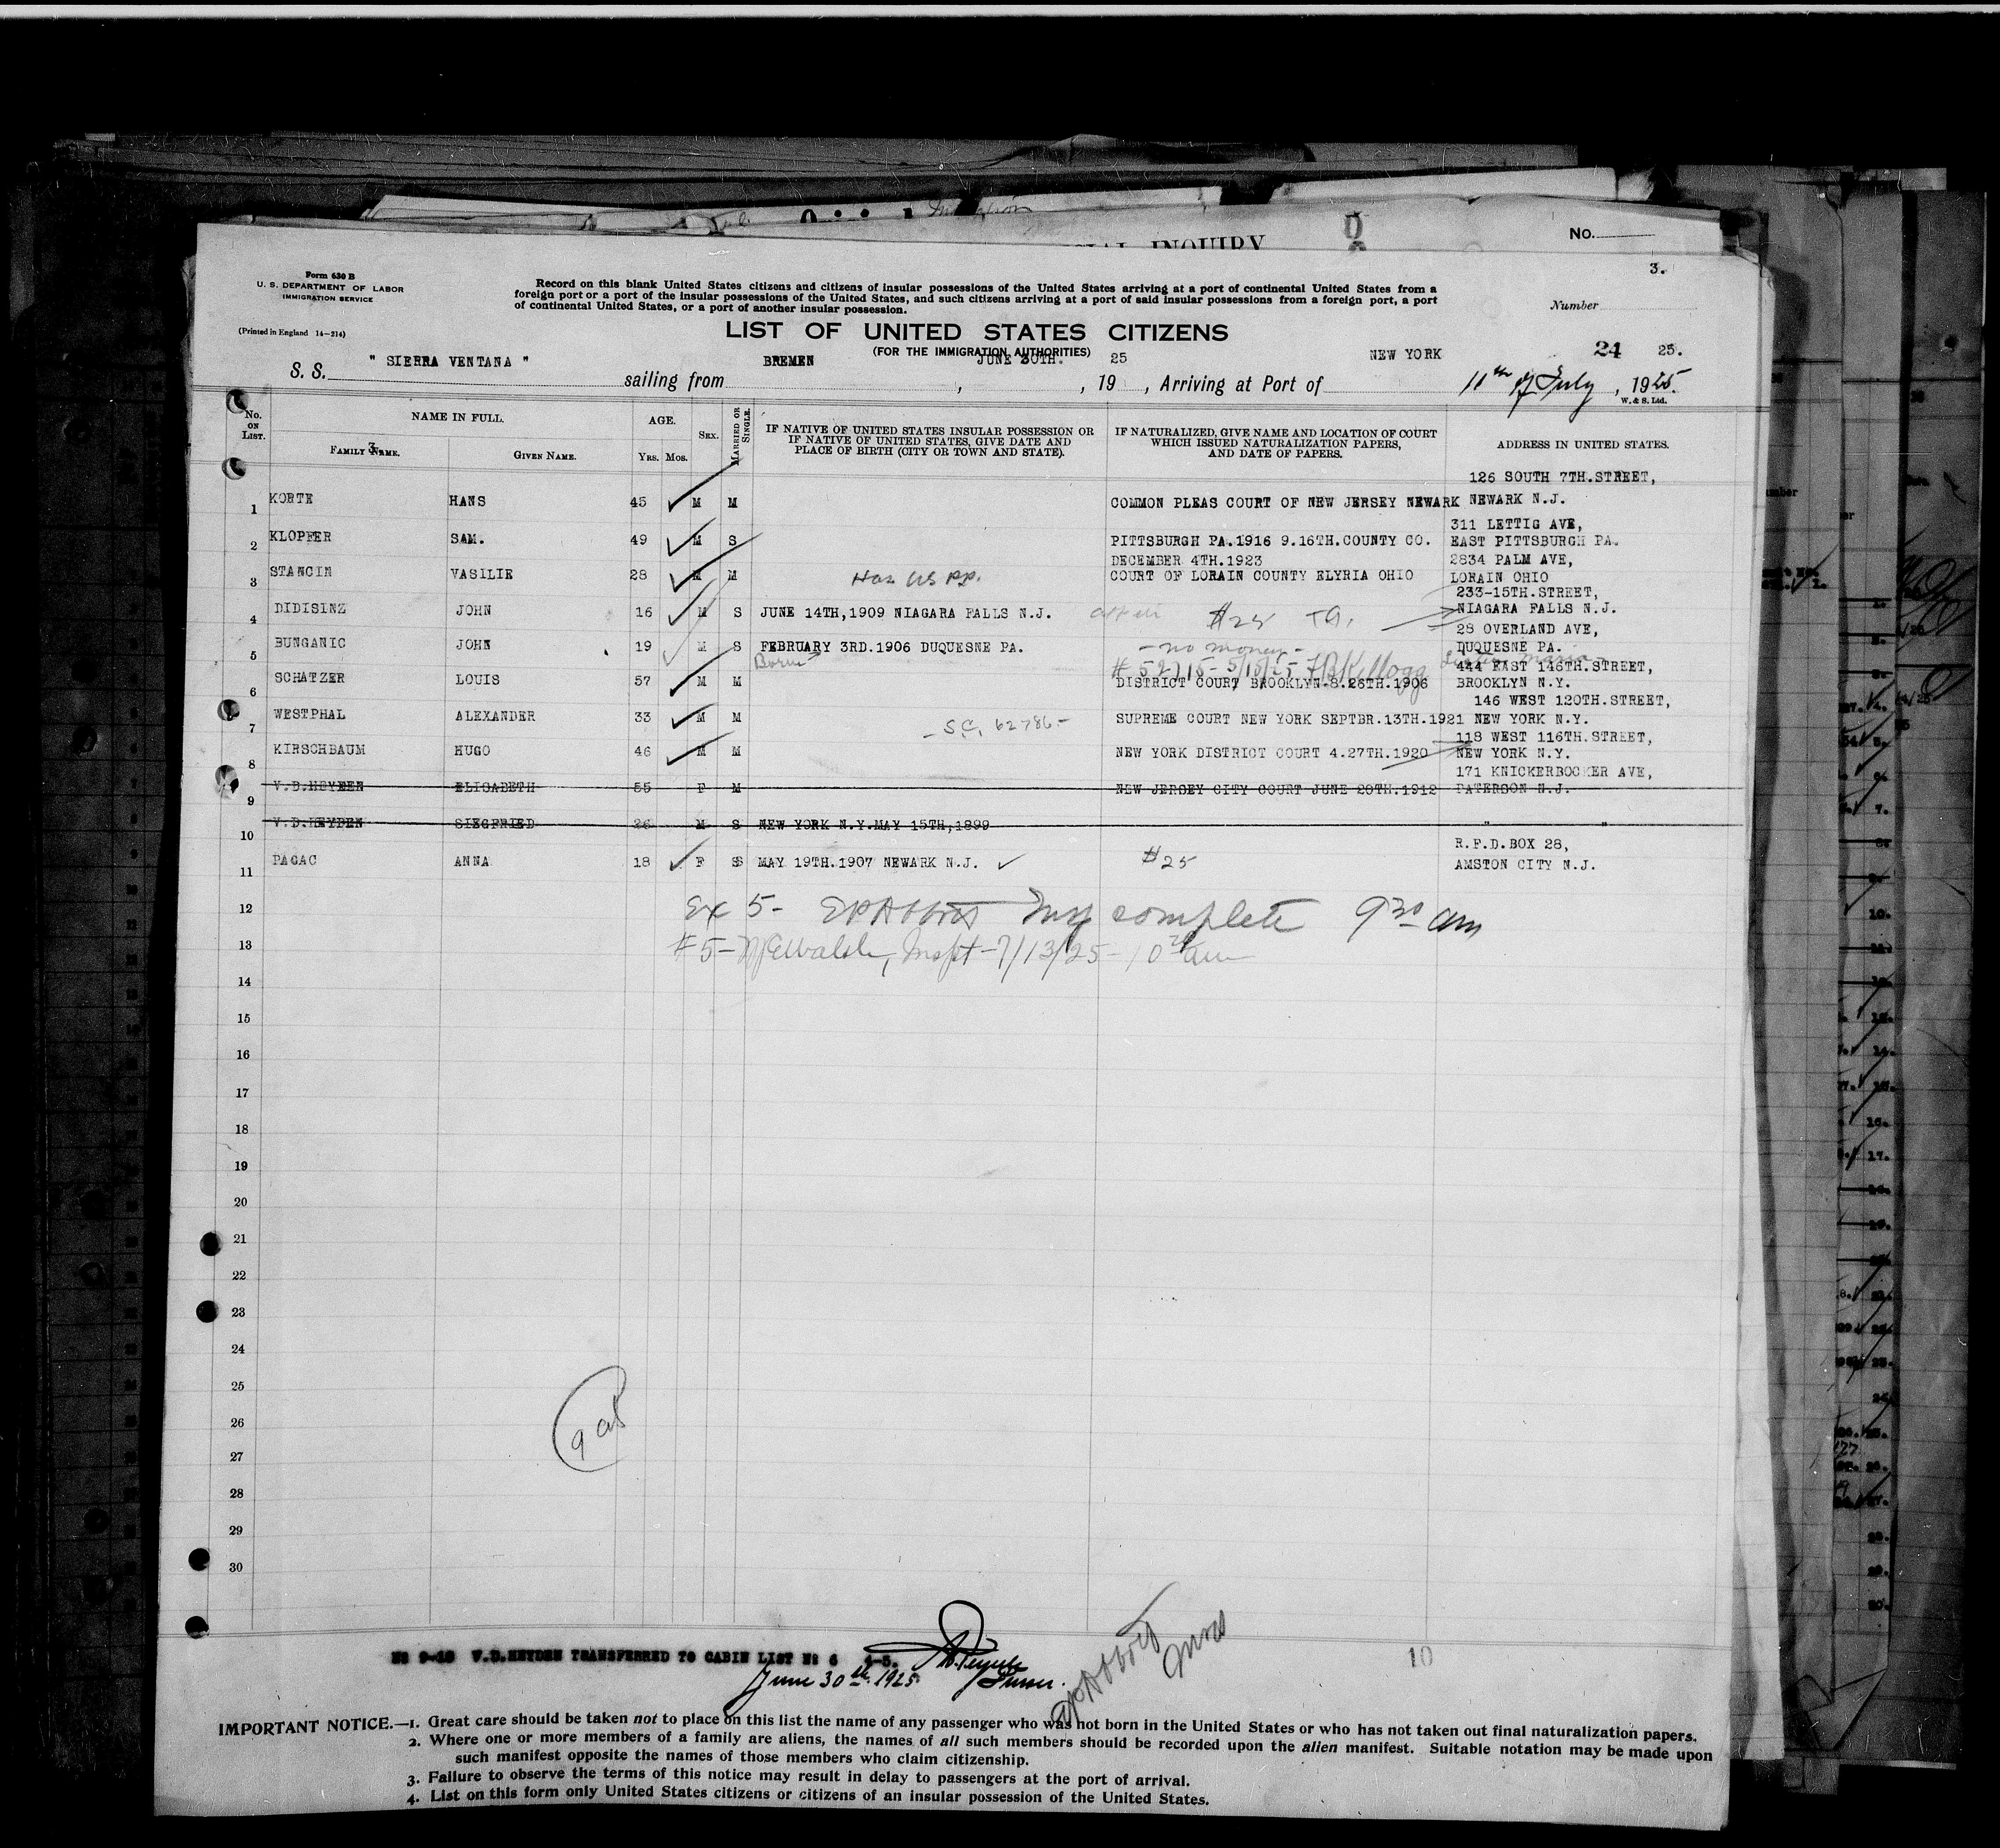 CIAL INQUIRY
No.
3.
Form 630 B
U. S. DEPARTMENT OF LABOR
IMMIGRATION SERVICE
(Printed in England 14—214)
Record on this blank United States citizens and citizens of insular possessions of the United States arriving at a port of continental United States from a
foreign port or a port of the insular possessions of the United States, and such citizens arriving at a port of said insular possessions from a foreign port, a port
of continental United States, or a port of another insular possession.
Number
LIST OF UNITED STATES CITIZENS
(FOR THE IMMIGRATION AUTHORITIES)
S. S. " SIERRA VENTANA " sailing from BREMEN , JUNE 30TH. , 19 25 , Arriving at Port of NEW YORK 24 25. 11th of July , 1925.
W. & S. Ltd.
No. ON LIST. NAME IN FULL. AGE. SEX. MARRIED OR SINGLE. IF NATIVE OF UNITED STATES INSULAR POSSESSION OR IF NATIVE OF UNITED STATES, GIVE DATE AND PLACE OF BIRTH (CITY OR TOWN AND STATE). IF NATURALIZED, GIVE NAME AND LOCATION OF COURT WHICH ISSUED NATURALIZATION PAPERS, AND DATE OF PAPERS. ADDRESS IN UNITED STATES.
3
FAMILY NAME. GIVEN NAME. YRS. MOS.
126 SOUTH 7TH.STREET,
1 KORTE HANS 45 M M COMMON PLEAS COURT OF NEW JERSEY NEWARK NEWARK N.J.
311 LETTIG AVE,
2 KLOPFER SAM. 49 M S PITTSBURGH PA.1916 9.16TH.COUNTY CO. EAST PITTSBURGH PA.
DECEMBER 4TH.1923 2834 PALM AVE,
3 STANCIN VASILIE 28 M M Has US PP. COURT OF LORAIN COUNTY ELYRIA OHIO LORAIN OHIO
233-15TH.STREET,
4 DIDISINZ JOHN 16 M S JUNE 14TH,1909 NIAGARA FALLS N.J. $25 NIAGARA FALLS N.J.
28 OVERLAND AVE,
5 BUNGANIC JOHN 19 M S FEBRUARY 3RD.1906 DUQUESNE PA. - no money - DUQUESNE PA.
Born # 52715- 5/15/25 FBKellogg 444 EAST 146TH.STREET,
6 SCHATZER LOUIS 57 M M DISTRICT COURT BROOKLYN-8.28TH.1906 BROOKLYN N.Y.
146 WEST 120TH.STREET,
7 WESTPHAL ALEXANDER 33 M M - S.C. 62786 - SUPREME COURT NEW YORK SEPTBR.13TH.1921 NEW YORK N.Y.
118 WEST 116TH.STREET,
8 KIRSCHBAUM HUGO 46 M M NEW YORK DISTRICT COURT 4.27TH.1920 NEW YORK N.Y.
171 KNICKERBOCKER AVE,
9 V.D.HEYDEN ELISABETH 55 F M NEW JERSEY CITY COURT JUNE 20TH.1912 PATERSON N.J.
10 V.D.HEYDEN SIEGFRIED 26 M S NEW YORK N.Y.MAY 15TH,1899 " "
R.F.D.BOX 28,
11 PAGAC ANNA 18 F S MAY 19TH.1907 NEWARK N.J. $25 AMSTON CITY N.J.
12 Ex 5- EPAbbott Insp complete 9 30 am
13 #5- Walsh, Inspt - 7/13/25 - 10 am
14
15
16
17
18
19
20
21
22
23
24
25
26
27
28
29
30
No 9-10 V.D.HEYDEN TRANSFERRED TO CABIN LIST No 6 4-5.
June 30th 1925.
EPAbbott
10
IMPORTANT NOTICE.—1. Great care should be taken not to place on this list the name of any passenger who was not born in the United States or who has not taken out final naturalization papers.
2. Where one or more members of a family are aliens, the names of all such members should be recorded upon the alien manifest. Suitable notation may be made upon
such manifest opposite the names of those members who claim citizenship.
3. Failure to observe the terms of this notice may result in delay to passengers at the port of arrival.
4. List on this form only United States citizens or citizens of an insular possession of the United States.